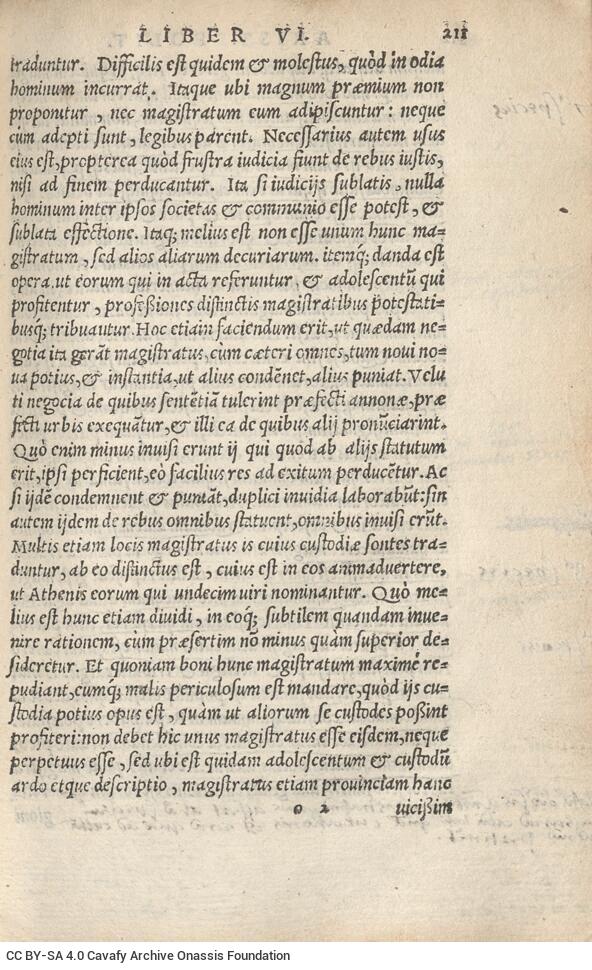 LIBER VI. 211
traduntur. Difficilis est quidem & molestus, quòd in odia
hominum incurrat. Itaque ubi magnum præmium non
proponitur, nec magistratum eum adipiscuntur: neque
cùm adepti sunt, legibus parent. Necessarius autem usus
eius est, propterea quòd frustra iudicia fiunt de rebus iustis,
nisi ad finem perducantur. Ita si iudicijs sublatis, nulla
hominum inter ipsos societas & communio esse potest, &
sublata effectione. Itaq; melius est non esse unum hunc ma=
gistratum, sed alios aliarum decuriarum. itemq; danda est
opera, ut eorum qui in acta referuntur, & adolescentũ qui
profitentur, professiones distinctis magistratibus potestati=
busq; tribuantur. Hoc etiam faciendum erit, ut quædam ne=
gotia ita gerãt magistratus, cùm cæteri omnes, tum noui no=
ua potius, & instantia, ut alius condẽnet, alius puniat. Velu
ti negocia de quibus sentẽtiã tulerint præfecti annonæ, præ
fecti urbis exequãtur, & illi ea de quibus alij pronũciarint.
Quò enim minus inuisi erunt ij qui quod ab alijs statutum
erit, ipsi perficient, eò facilius res ad exitum perducẽtur. Ac
si ijdẽ condemnent & puniãt, duplici inuidia laborabũt: sin
autem ijdem de rebus omnibus statuent, omnibus inuisi erũt.
Multis etiam locis magistratus is cuius custodiæ sontes tra=
duntur, ab eo distinctus est, cuius est in eos animaduertere,
ut Athenis eorum qui undecim uiri nominantur. Quò me=
lius est hunc etiam diuidi, in eoq; subtilem quandam inue=
nire rationem, cùm præsertim nõ minus quàm superior de=
sideretur. Et quoniam boni hunc magistratum maximè re=
pudiant, eumq; malis periculosum est mandare, quòd ijs cu=
stodia potius opus est, quàm ut aliorum se custodes possint
profiteri: non debet hic unus magistratus esse eisdem, neque
perpetuus esse, sed ubi est quidam adolescentum & custodũ
ardo etque descriptio, magistratus etiam prouinciam hanc
o 2 uicissim
CC BY-SA 4.0 Cavafy Archive Onassis Foundation